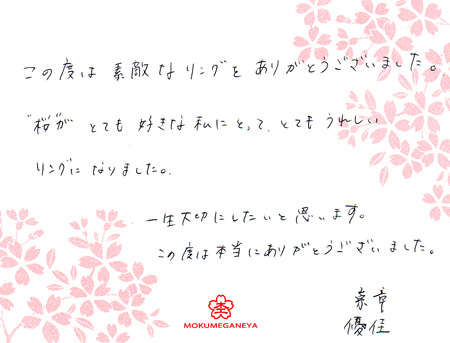 この度は 素敵なリングを ありがとうございました。
"桜"が とても 好きな私にとって、とても うれしい
リングに なりました。
一生大切にしたいと思います。
この度は本当にありがとうございました。
優佳
MOKUMEGANEYA